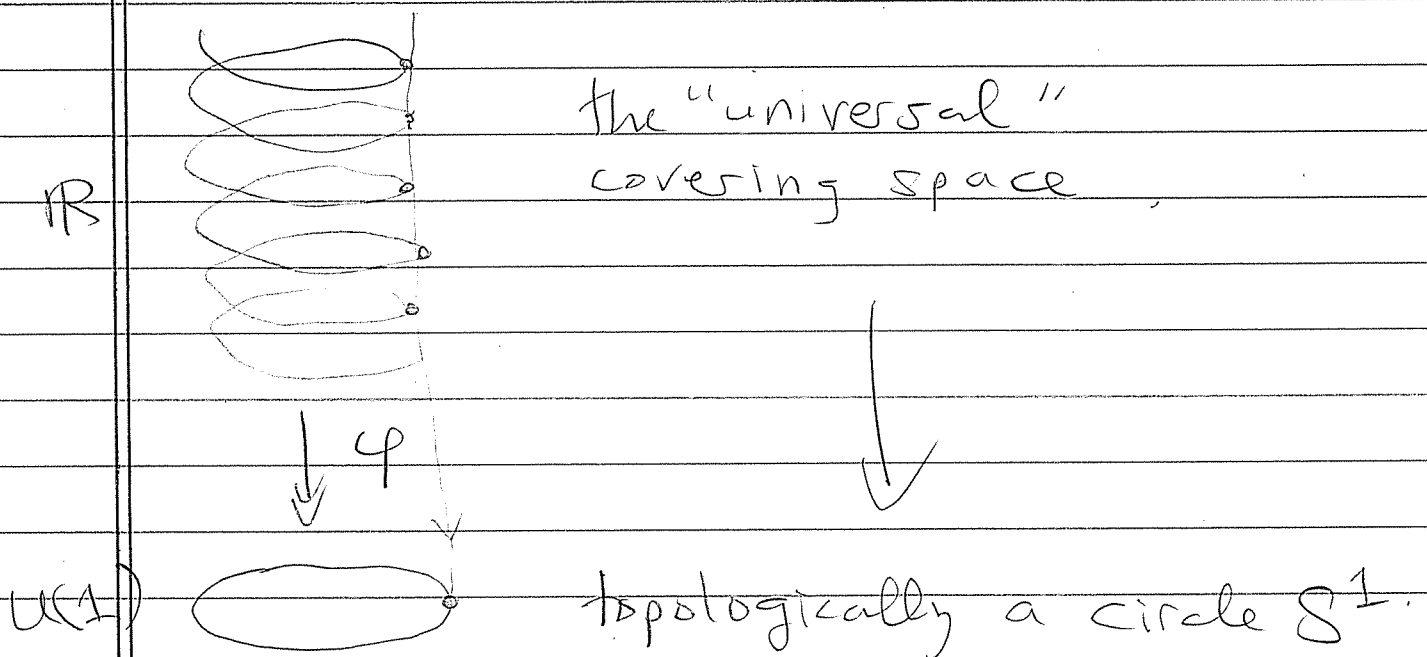 the "universal"
covering space
ℝ
φ
U(1)
topologically a circle S¹.